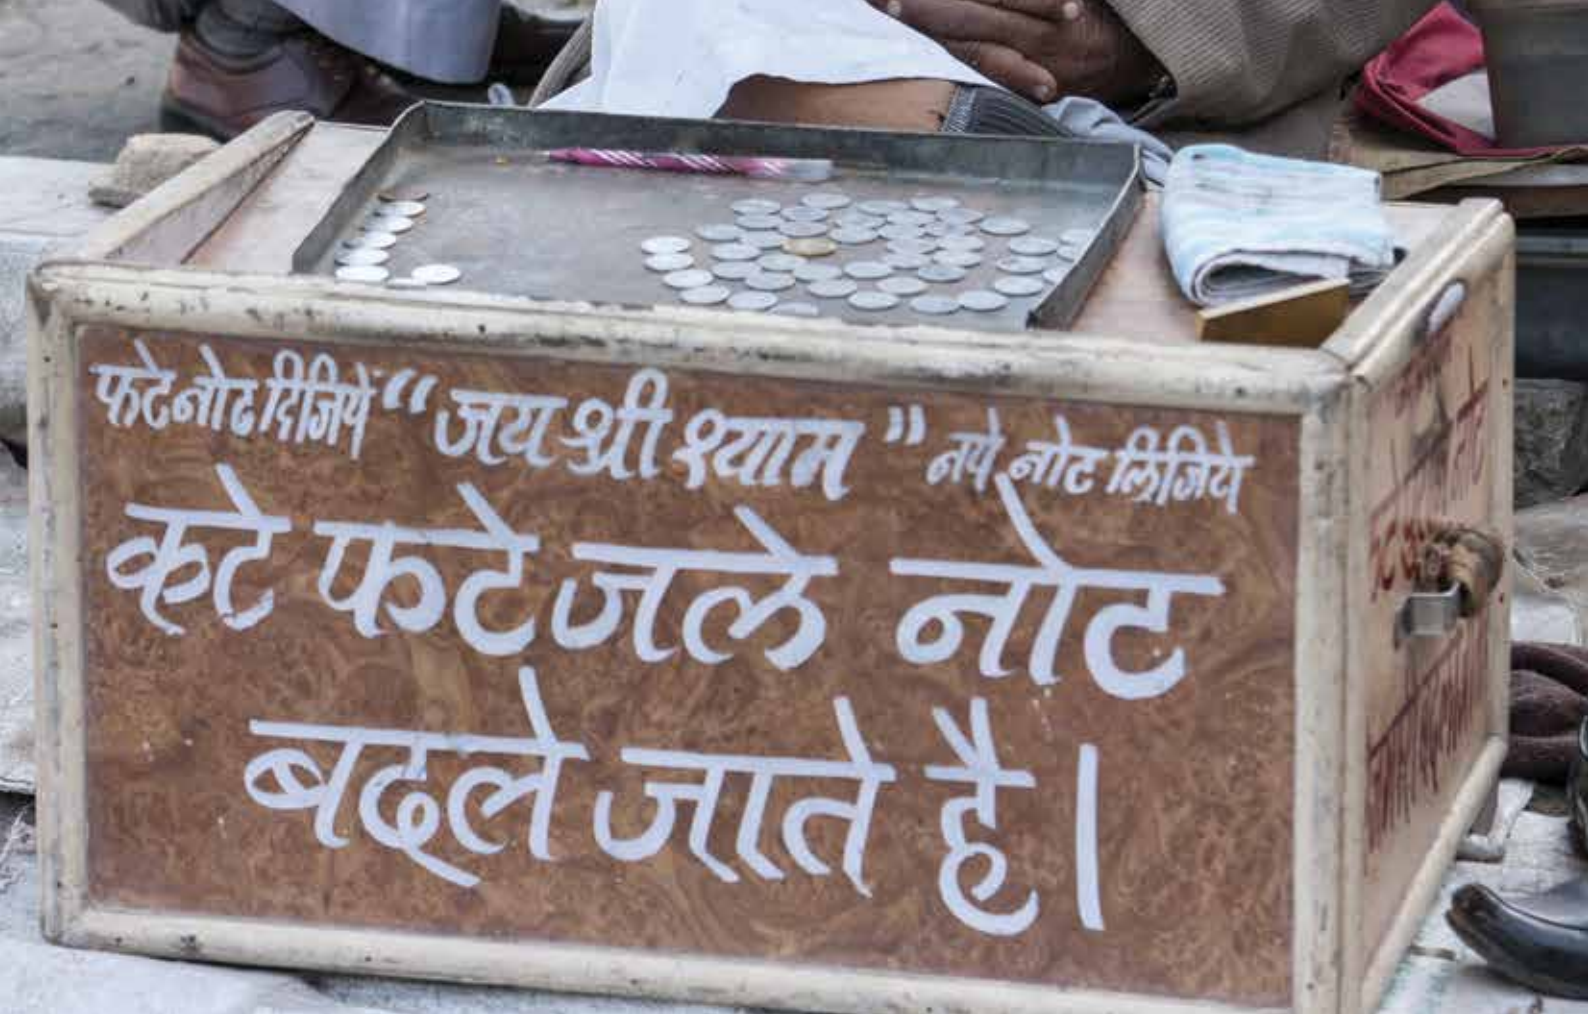 फटे नोट दिजिये “जय श्री श्याम” नये नोट लिजिये
कटे फटे जले नोट
बदले जाते है।